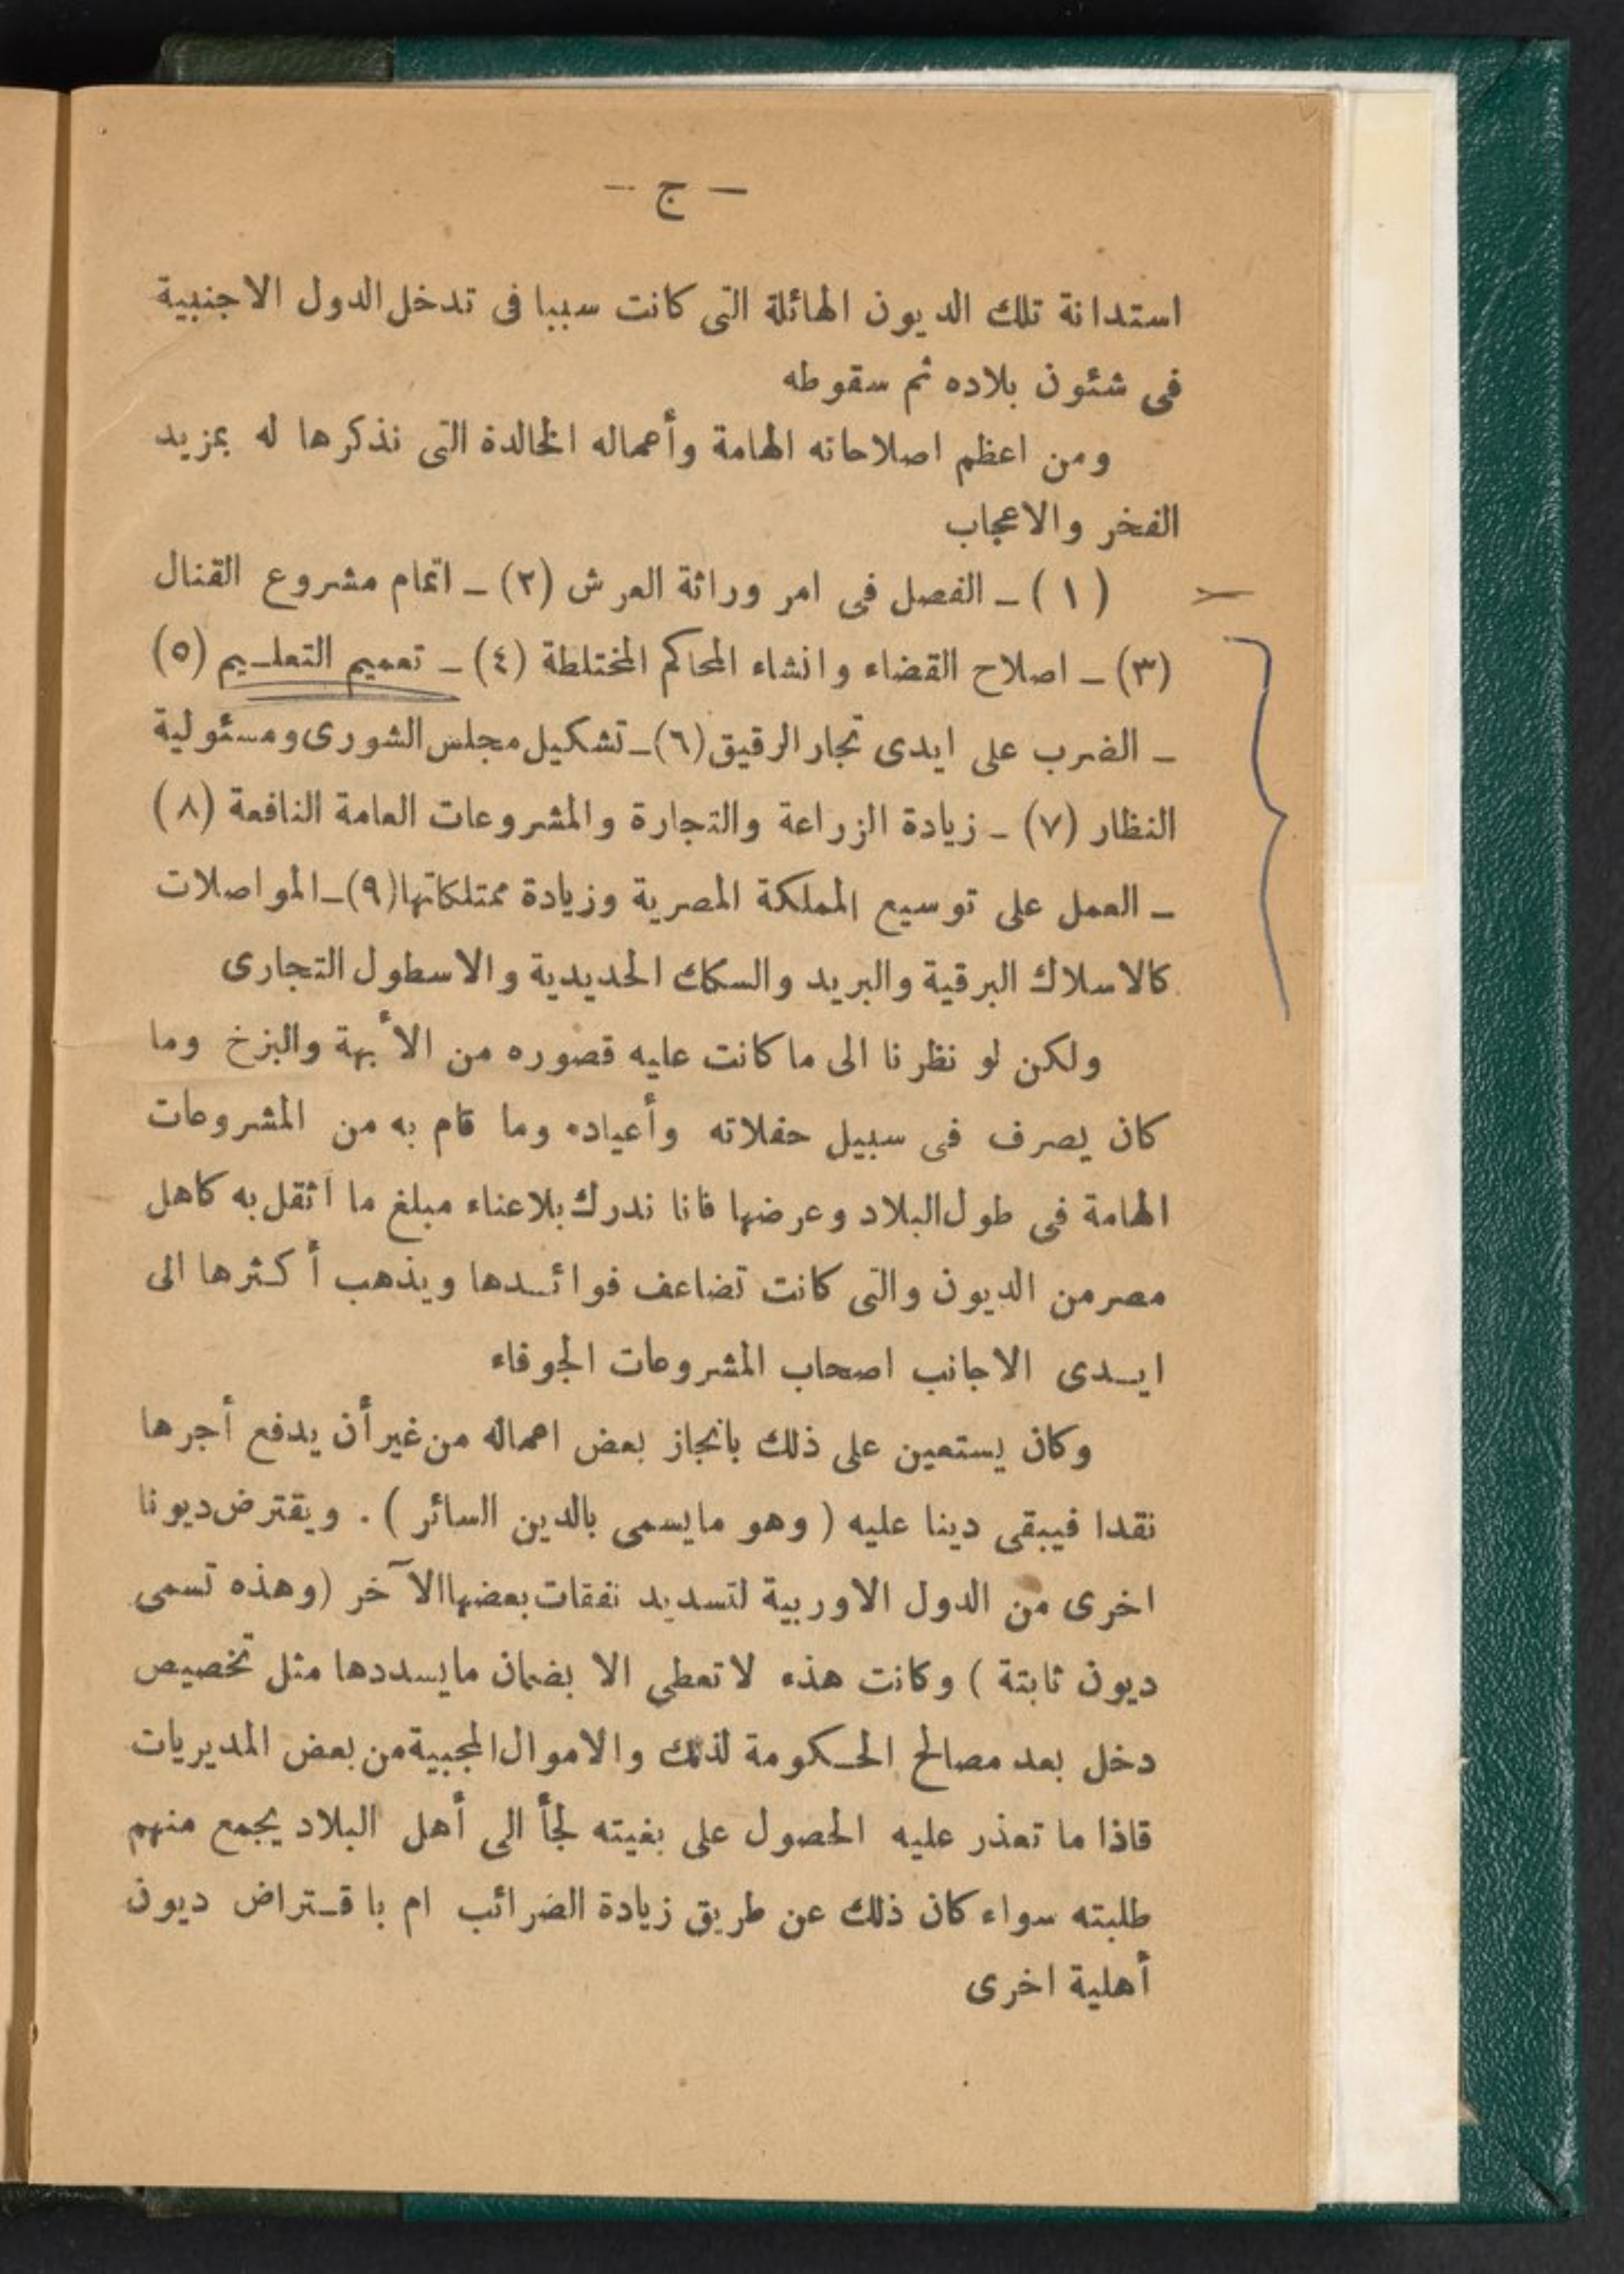 — ج —
استدانة تلك الديون الهائلة التى كانت سببا فى تدخل الدول الاجنبية
فى شئون بلاده ثم سقوطه
ومن اعظم اصلاحاته الهامة وأعماله الخالدة التى نذكرها له بمزيد
الفخر والاعجاب
(١) ــ الفصل فى امر وراثة العرش (٢) ــ اتمام مشروع القنال
(٣) ــ اصلاح القضاء وانشاء المحاكم المختلطة (٤) ــ تعميم التعلـيم (٥)
ــ الضرب على ايدى تجار الرقيق (٦) ــ تشكيل مجلس الشورى ومسئولية
النظار (٧) ــ زيادة الزراعة والتجارة والمشروعات العامة النافعة (٨)
ــ العمل على توسيع المملكة المصرية وزيادة ممتلكاتها (٩) ــ المواصلات
كالاسلاك البرقية والبريد والسكك الحديدية والاسطول التجارى
ولكن لو نظرنا الى ما كانت عليه قصوره من الأبهة والبزخ وما
كان يصرف فى سبيل حفلاته وأعياده وما قام به من المشروعات
الهامة فى طول البلاد وعرضها فانا ندرك بلا عناء مبلغ ما أثقل به كاهل
مصر من الديون والتى كانت تضاعف فوائـدها ويذهب أكثرها الى
ايـدى الاجانب اصحاب المشروعات الجوفاء
وكان يستعين على ذلك بانجاز بعض اعماله من غير أن يدفع أجرها
نقدا فيبقى دينا عليه ( وهو مايسمى بالدين السائر ) . ويقترض ديونا
اخرى من الدول الاوربية لتسديد نفقات بعضها الآخر (وهذه تسمى
ديون ثابتة ) وكانت هذه لا تعطى الا بضمان مايسددها مثل تخصيص
دخل بعد مصالح الحـكومة لذلك والاموال المجبية من بعض المديريات
فاذا ما تعذر عليه الحصول على بغيته لجأ الى أهل البلاد يجمع منهم
طلبته سواء كان ذلك عن طريق زيادة الضرائب ام باقـتراض ديون
أهلية اخرى